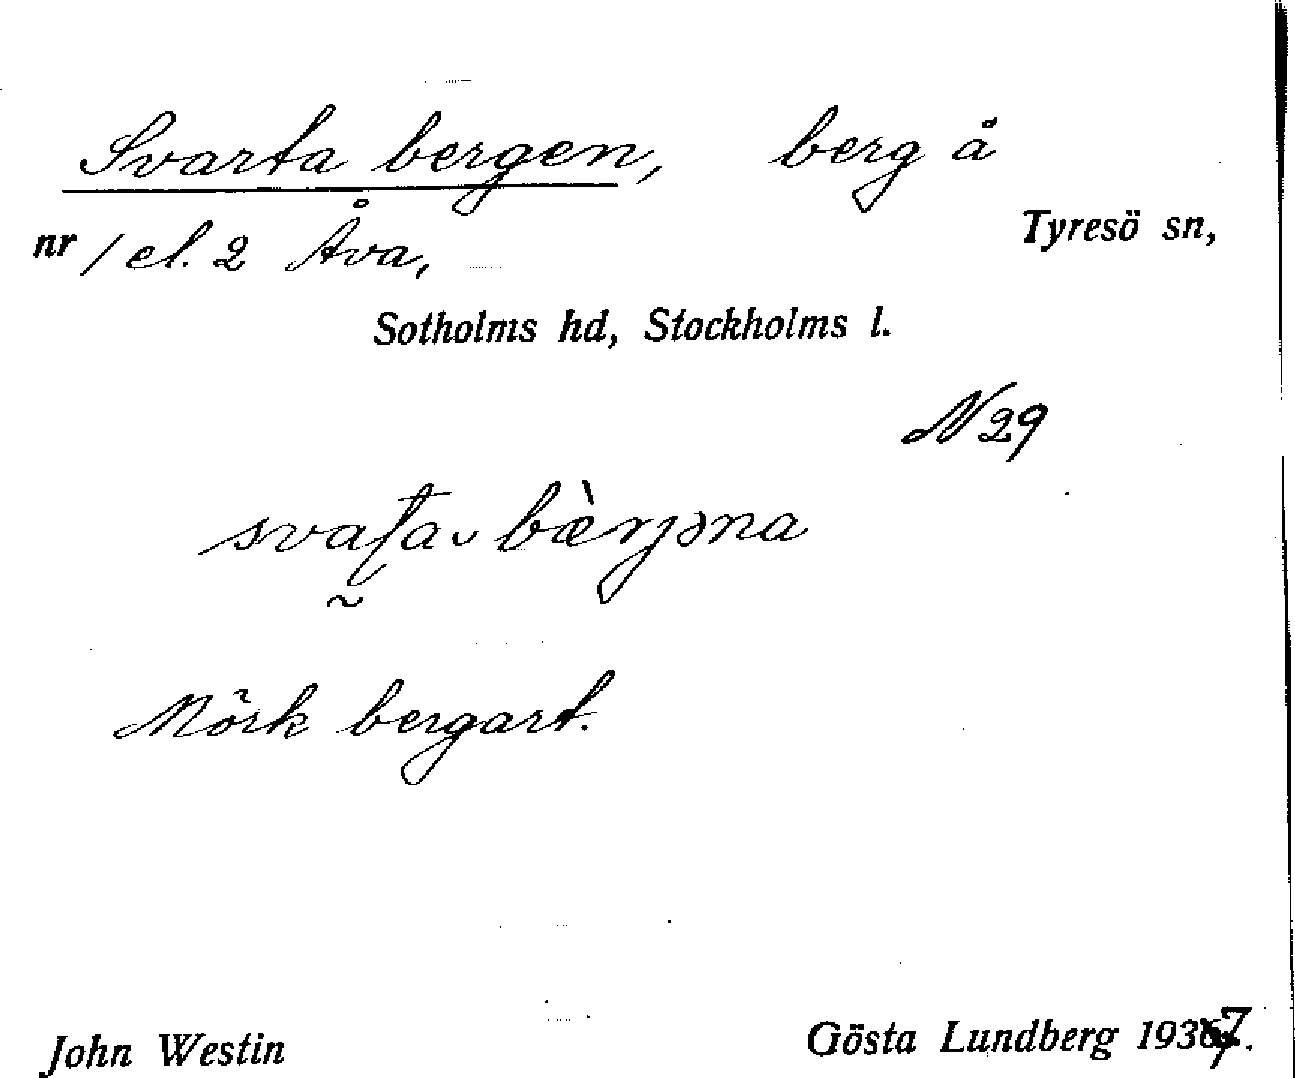 Svarta bergen, berg å
nr 1 el. 2 Åva, Tyresö sn,
Sotholms hd, Stockholms l.
N 29
svaʈa bæ̀rjəna
Mörk bergart.
John Westin Gösta Lundberg 1937.